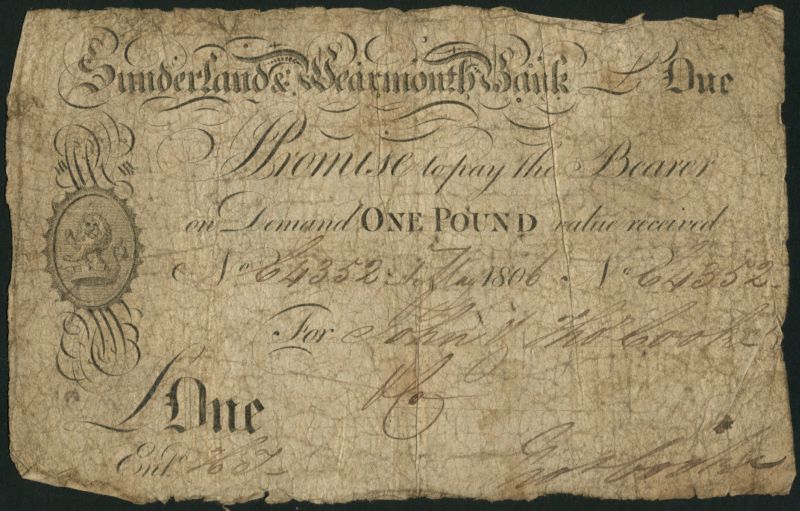 Sunderland & Wearmouth Bank £ One
I Promise to pay the Bearer
on Demand ONE POUND value received
No C4352. 1 May 1806. No C4352.
For John & Thos Cooke
& Co
£ One
Entd
Thos Cooke